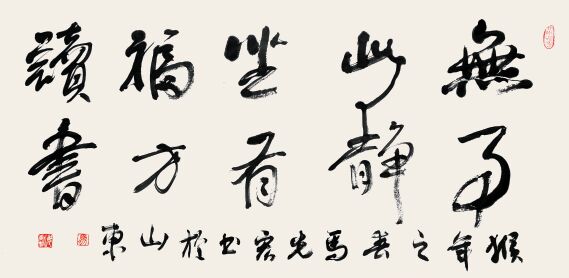 無事
此静
坐有
福方
讀書
猴年之春馬先宏书於山東